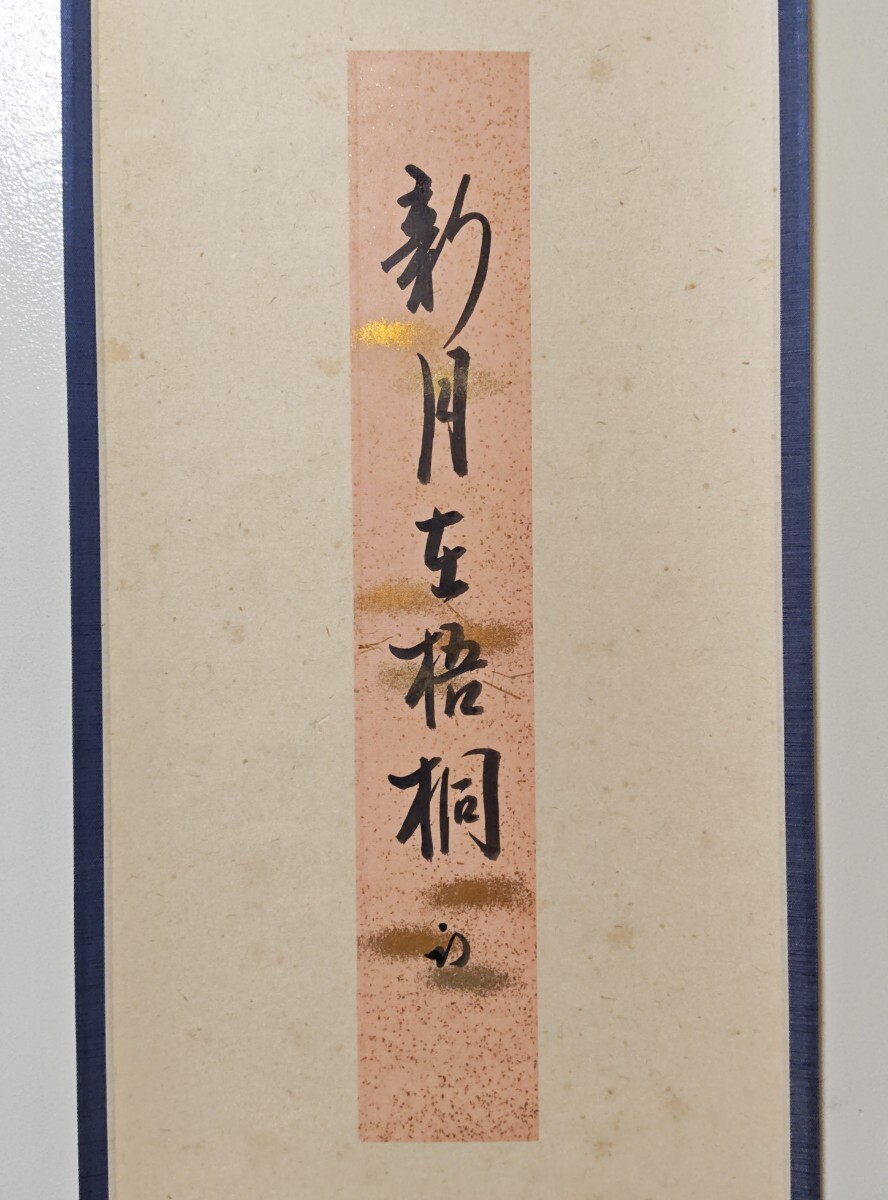 新月在梧桐